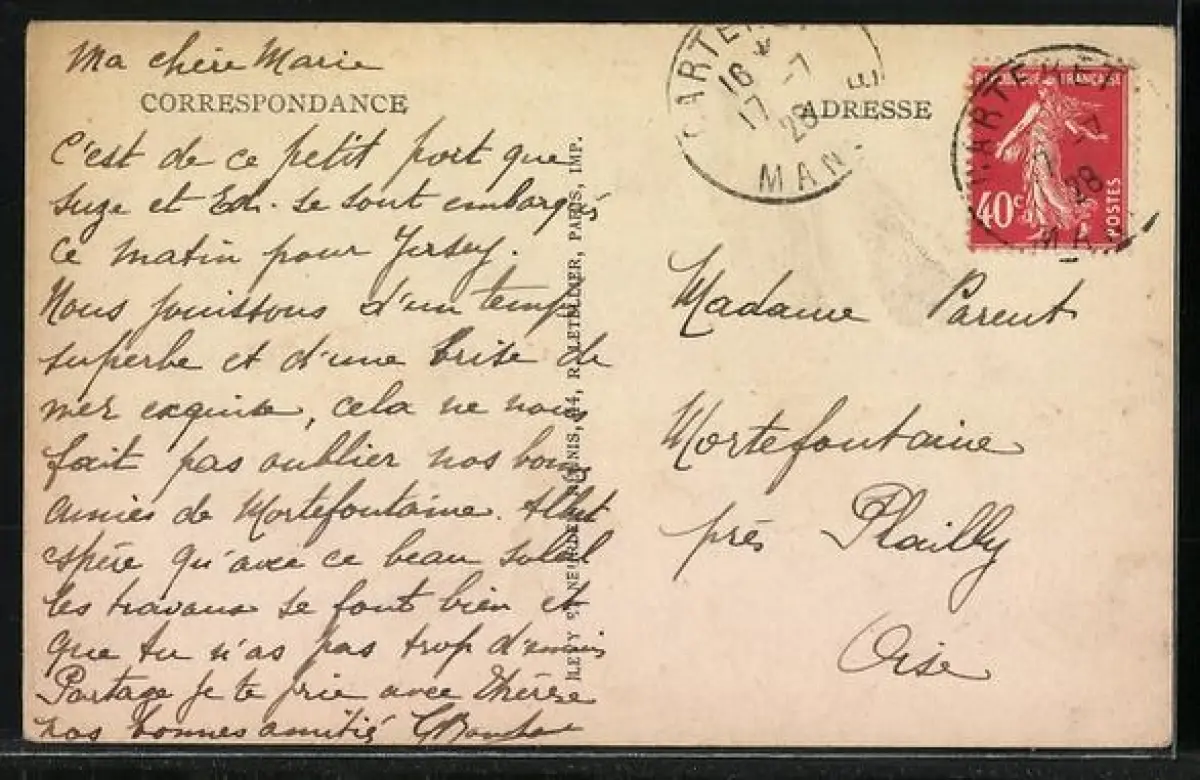 Ma chère Marie
CORRESPONDANCE
C'est de ce petit port que
Suze et Ed. se sont embarqués
ce matin pour Jersey.
Nous jouissons d'un temps
superbe et d'une brise de
mer exquise, cela ne nous
fait pas oublier nos bonnes
amies de Mortefontaine. Albert
espère qu'avec ce beau soleil
les travaux se font bien et
que tu n'as pas trop d'ennuis
Partage je te prie avec Thérèse
nos bonnes amitiés
LEVY & NEURDEIN RÉUNIS, 44, R. LETELLIER, PARIS, IMP.
CARTERET
16 *
17 -7
28
MAN
ADRESSE
RÉPUBLIQUE FRANÇAISE
40 c
POSTES
CARTERET
-7
28
MA
Madame Parent
Mortefontaine
près Plailly
Oise